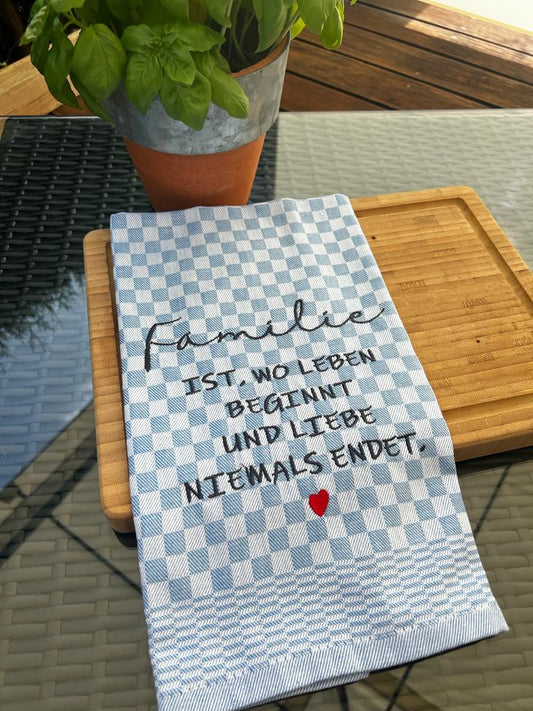 Familie
IST, WO LEBEN
BEGINNT
UND LIEBE
NIEMALS ENDET.